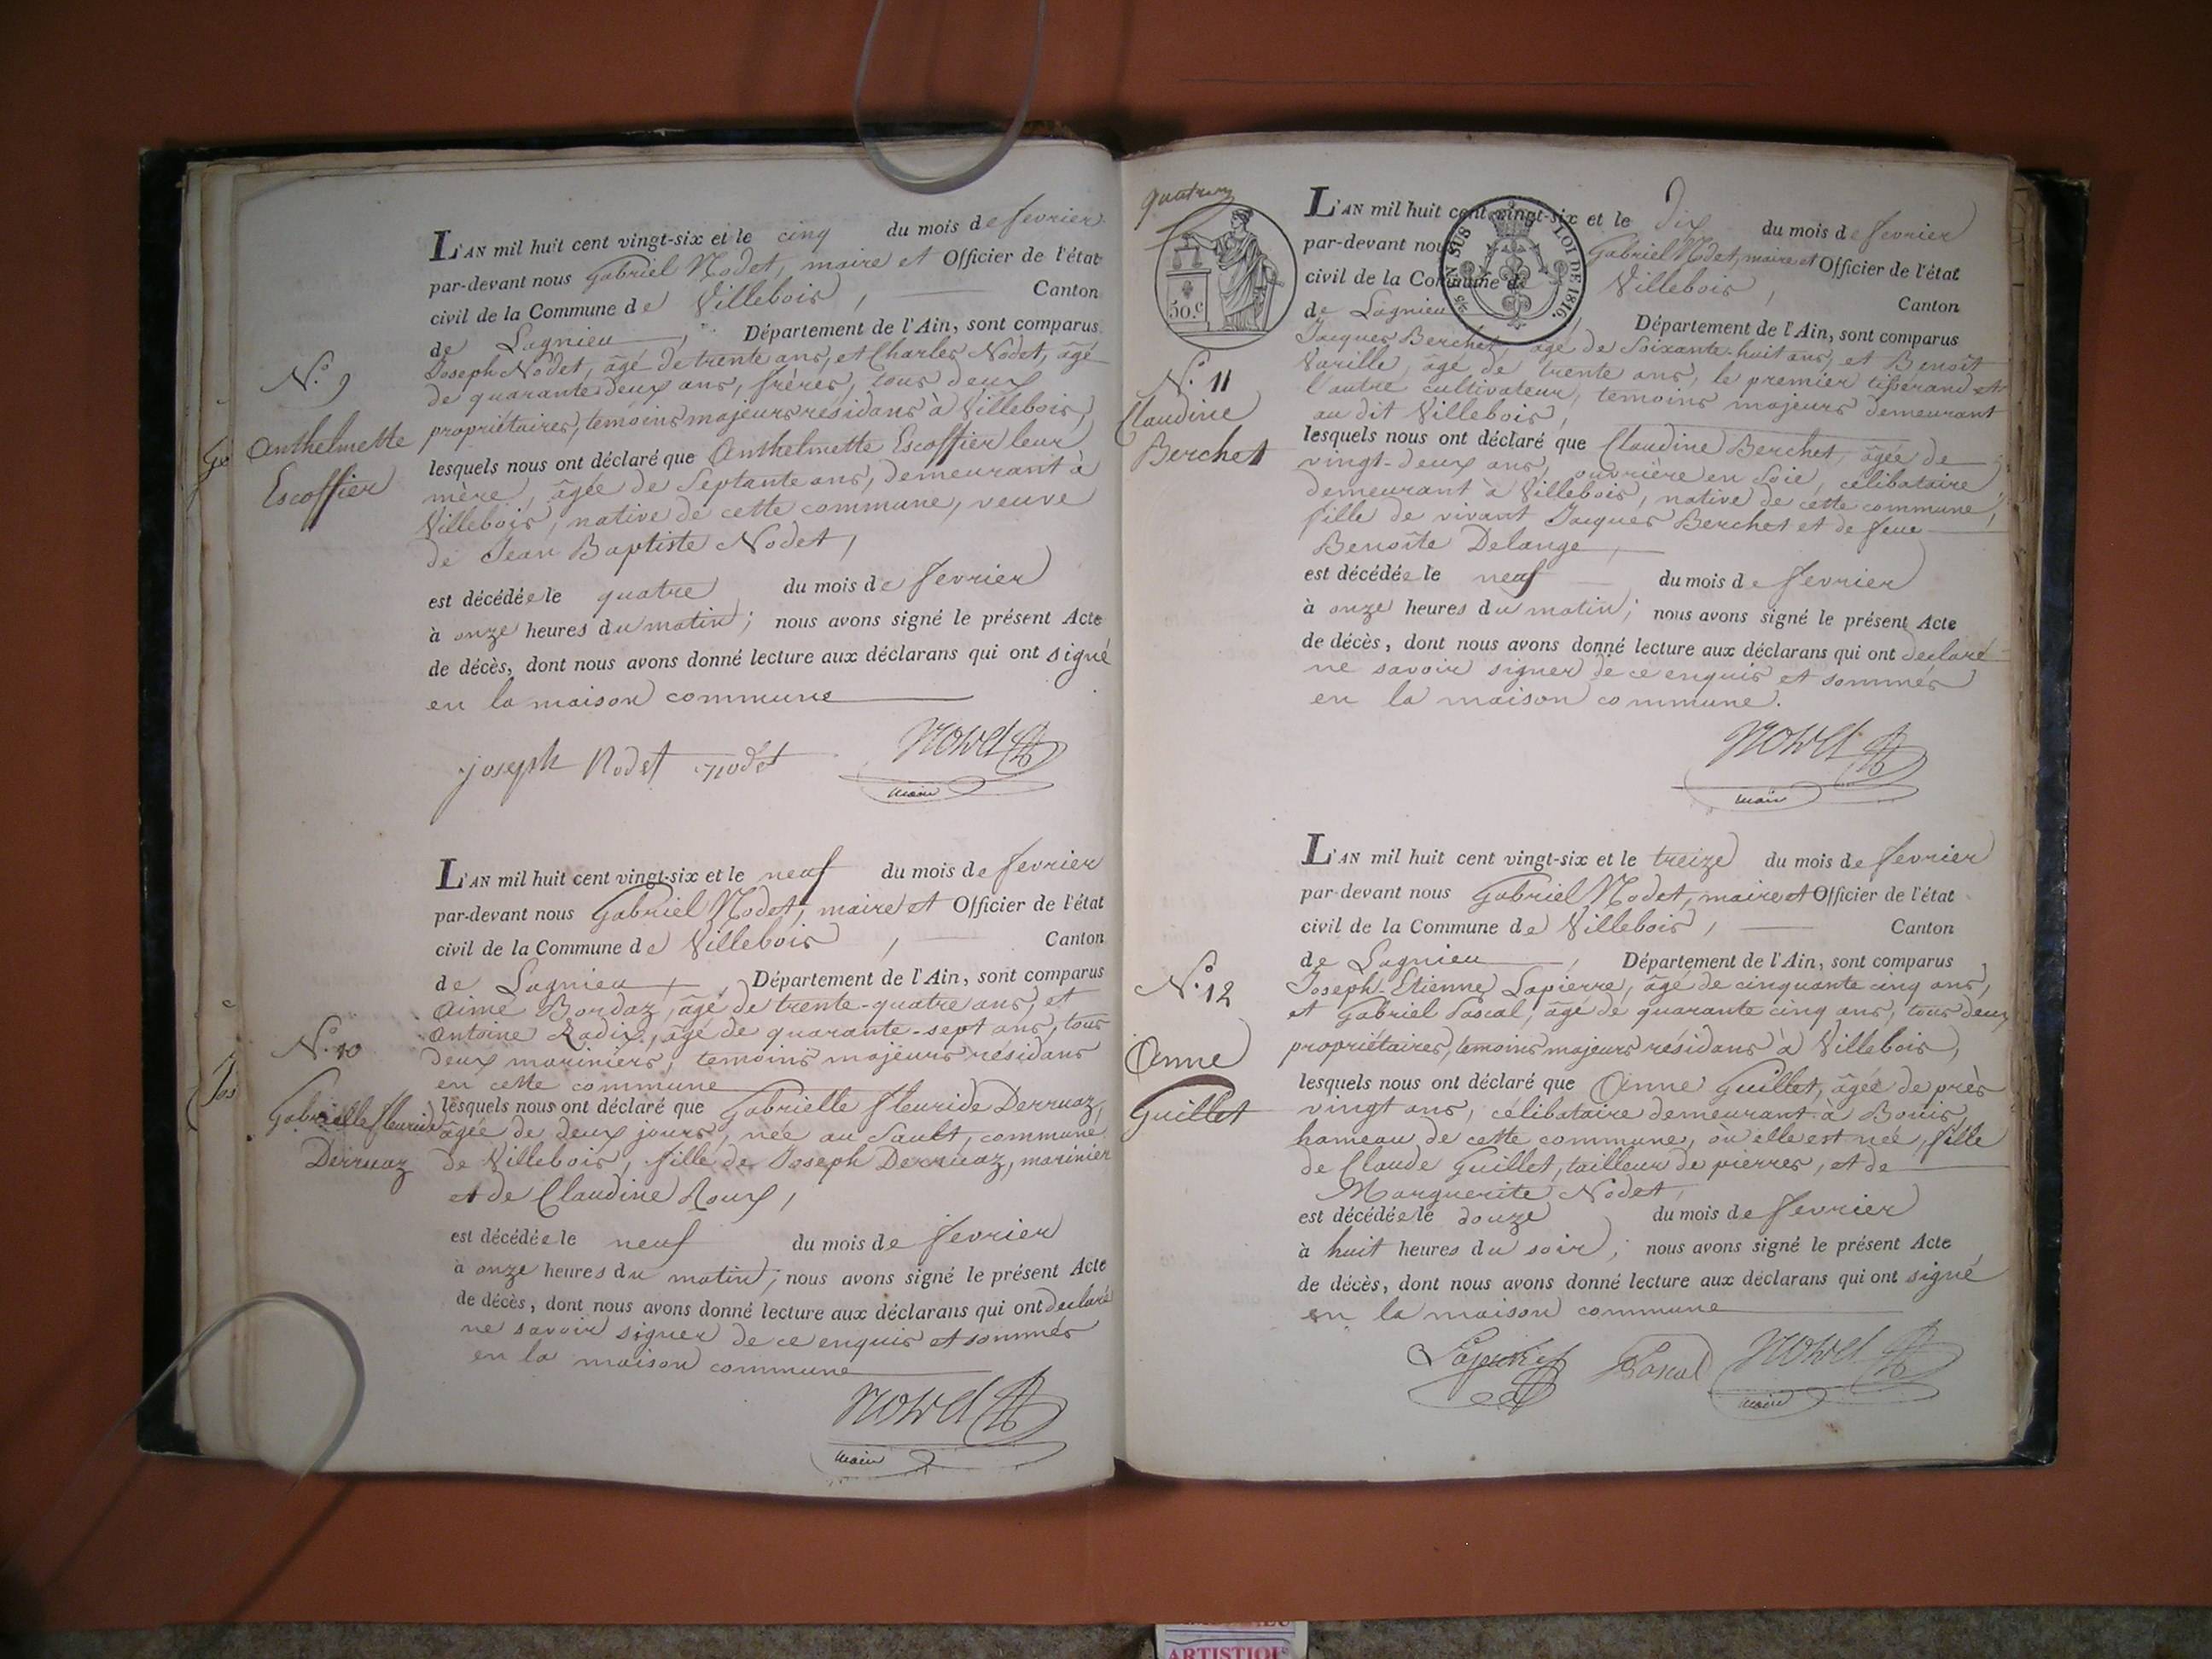 L'AN mil huit cent vingt-six et le cinq du mois de fevrier
par-devant nous Gabriel Nodet, maire et Officier de l'état
civil de la Commune de Villebois, Canton
de Lagnieu, Département de l'Ain, sont comparus
Joseph Nodet, âgé de trente ans, et Charles Nodet, âgé
de quarante deux ans, frères, tous deux
propriétaires, temoins majeurs résidans à Villebois,
lesquels nous ont déclaré que Anthelmette Escoffier leur
mère, âgée de Septante ans, demeurant à
Villebois, native de cette commune, veuve
de Jean Baptiste Nodet,
est décédée le quatre du mois de fevrier
à onze heures du matin; nous avons signé le présent Acte
de décès, dont nous avons donné lecture aux déclarans qui ont signé
en la maison commune
N.º 9
Anthelmette
Escoffier
joseph Nodet nodet Nodet
maire
L'AN mil huit cent vingt-six et le neuf du mois de fevrier
par-devant nous Gabriel Nodet, maire et Officier de l'état
civil de la Commune de Villebois, Canton
de Lagnieu, Département de l'Ain, sont comparus
Aimé Bordaz, âgé de trente-quatre ans, et
Antoine Radix, âgé de quarante-sept ans, tous
deux mariniers, temoins majeurs résidans
en cette commune
lesquels nous ont déclaré que Gabrielle fleuride Derruaz,
âgée de deux jours, née au Sault, commune
de Villebois, fille de Joseph Derruaz, marinier
et de Claudine Roux,
est décédée le neuf du mois de fevrier
à onze heures du matin; nous avons signé le présent Acte
de décès, dont nous avons donné lecture aux déclarans qui ont declaré
ne savoir signer de ce enquis et sommés
en la maison commune
N.º 10
Gabrielle fleuride
Derruaz
Nodet
maire
50.c
EN SUS LOI DE 1816.
L'AN mil huit cent vingt-six et le dix du mois de fevrier
par-devant nous Gabriel Nodet, maire et Officier de l'état
civil de la Commune de Villebois, Canton
de Lagnieu, Département de l'Ain, sont comparus
Jacques Berchet, âgé de Soixante-huit ans, et Benoît
Varille, âgé de trente ans, le premier tisserand et
l'autre cultivateur, temoins majeurs demeurant
au dit Villebois,
lesquels nous ont déclaré que Claudine Berchet, âgée de
vingt-deux ans, ouvrière en Soie, célibataire
demeurant à Villebois, native de cette commune,
fille de vivant Jacques Berchet et de feue
Benoîte Delange,
est décédée le neuf du mois de fevrier
à onze heures du matin; nous avons signé le présent Acte
de décès, dont nous avons donné lecture aux déclarans qui ont declaré
ne savoir signer de ce enquis et sommés
en la maison commune.
N.º 11
Claudine
Berchet
Nodet
maire
L'AN mil huit cent vingt-six et le treize du mois de fevrier
par-devant nous Gabriel Nodet, maire et Officier de l'état
civil de la Commune de Villebois, Canton
de Lagnieu, Département de l'Ain, sont comparus
Joseph-Etienne Lapierre, âgé de cinquante cinq ans,
et Gabriel Pascal, âgé de quarante cinq ans, tous deux
propriétaires, temoins majeurs résidans à Villebois,
lesquels nous ont déclaré que Anne Guillet, âgée de près
vingt ans, célibataire demeurant à Bouis,
hameau de cette commune, où elle est née, fille
de Claude Guillet, tailleur de pierres, et de
Marguerite Nodet,
est décédée le douze du mois de fevrier
à huit heures du soir; nous avons signé le présent Acte
de décès, dont nous avons donné lecture aux déclarans qui ont signé
en la maison commune
N.º 12
Anne
Guillet
Lapierre Pascal Nodet
maire